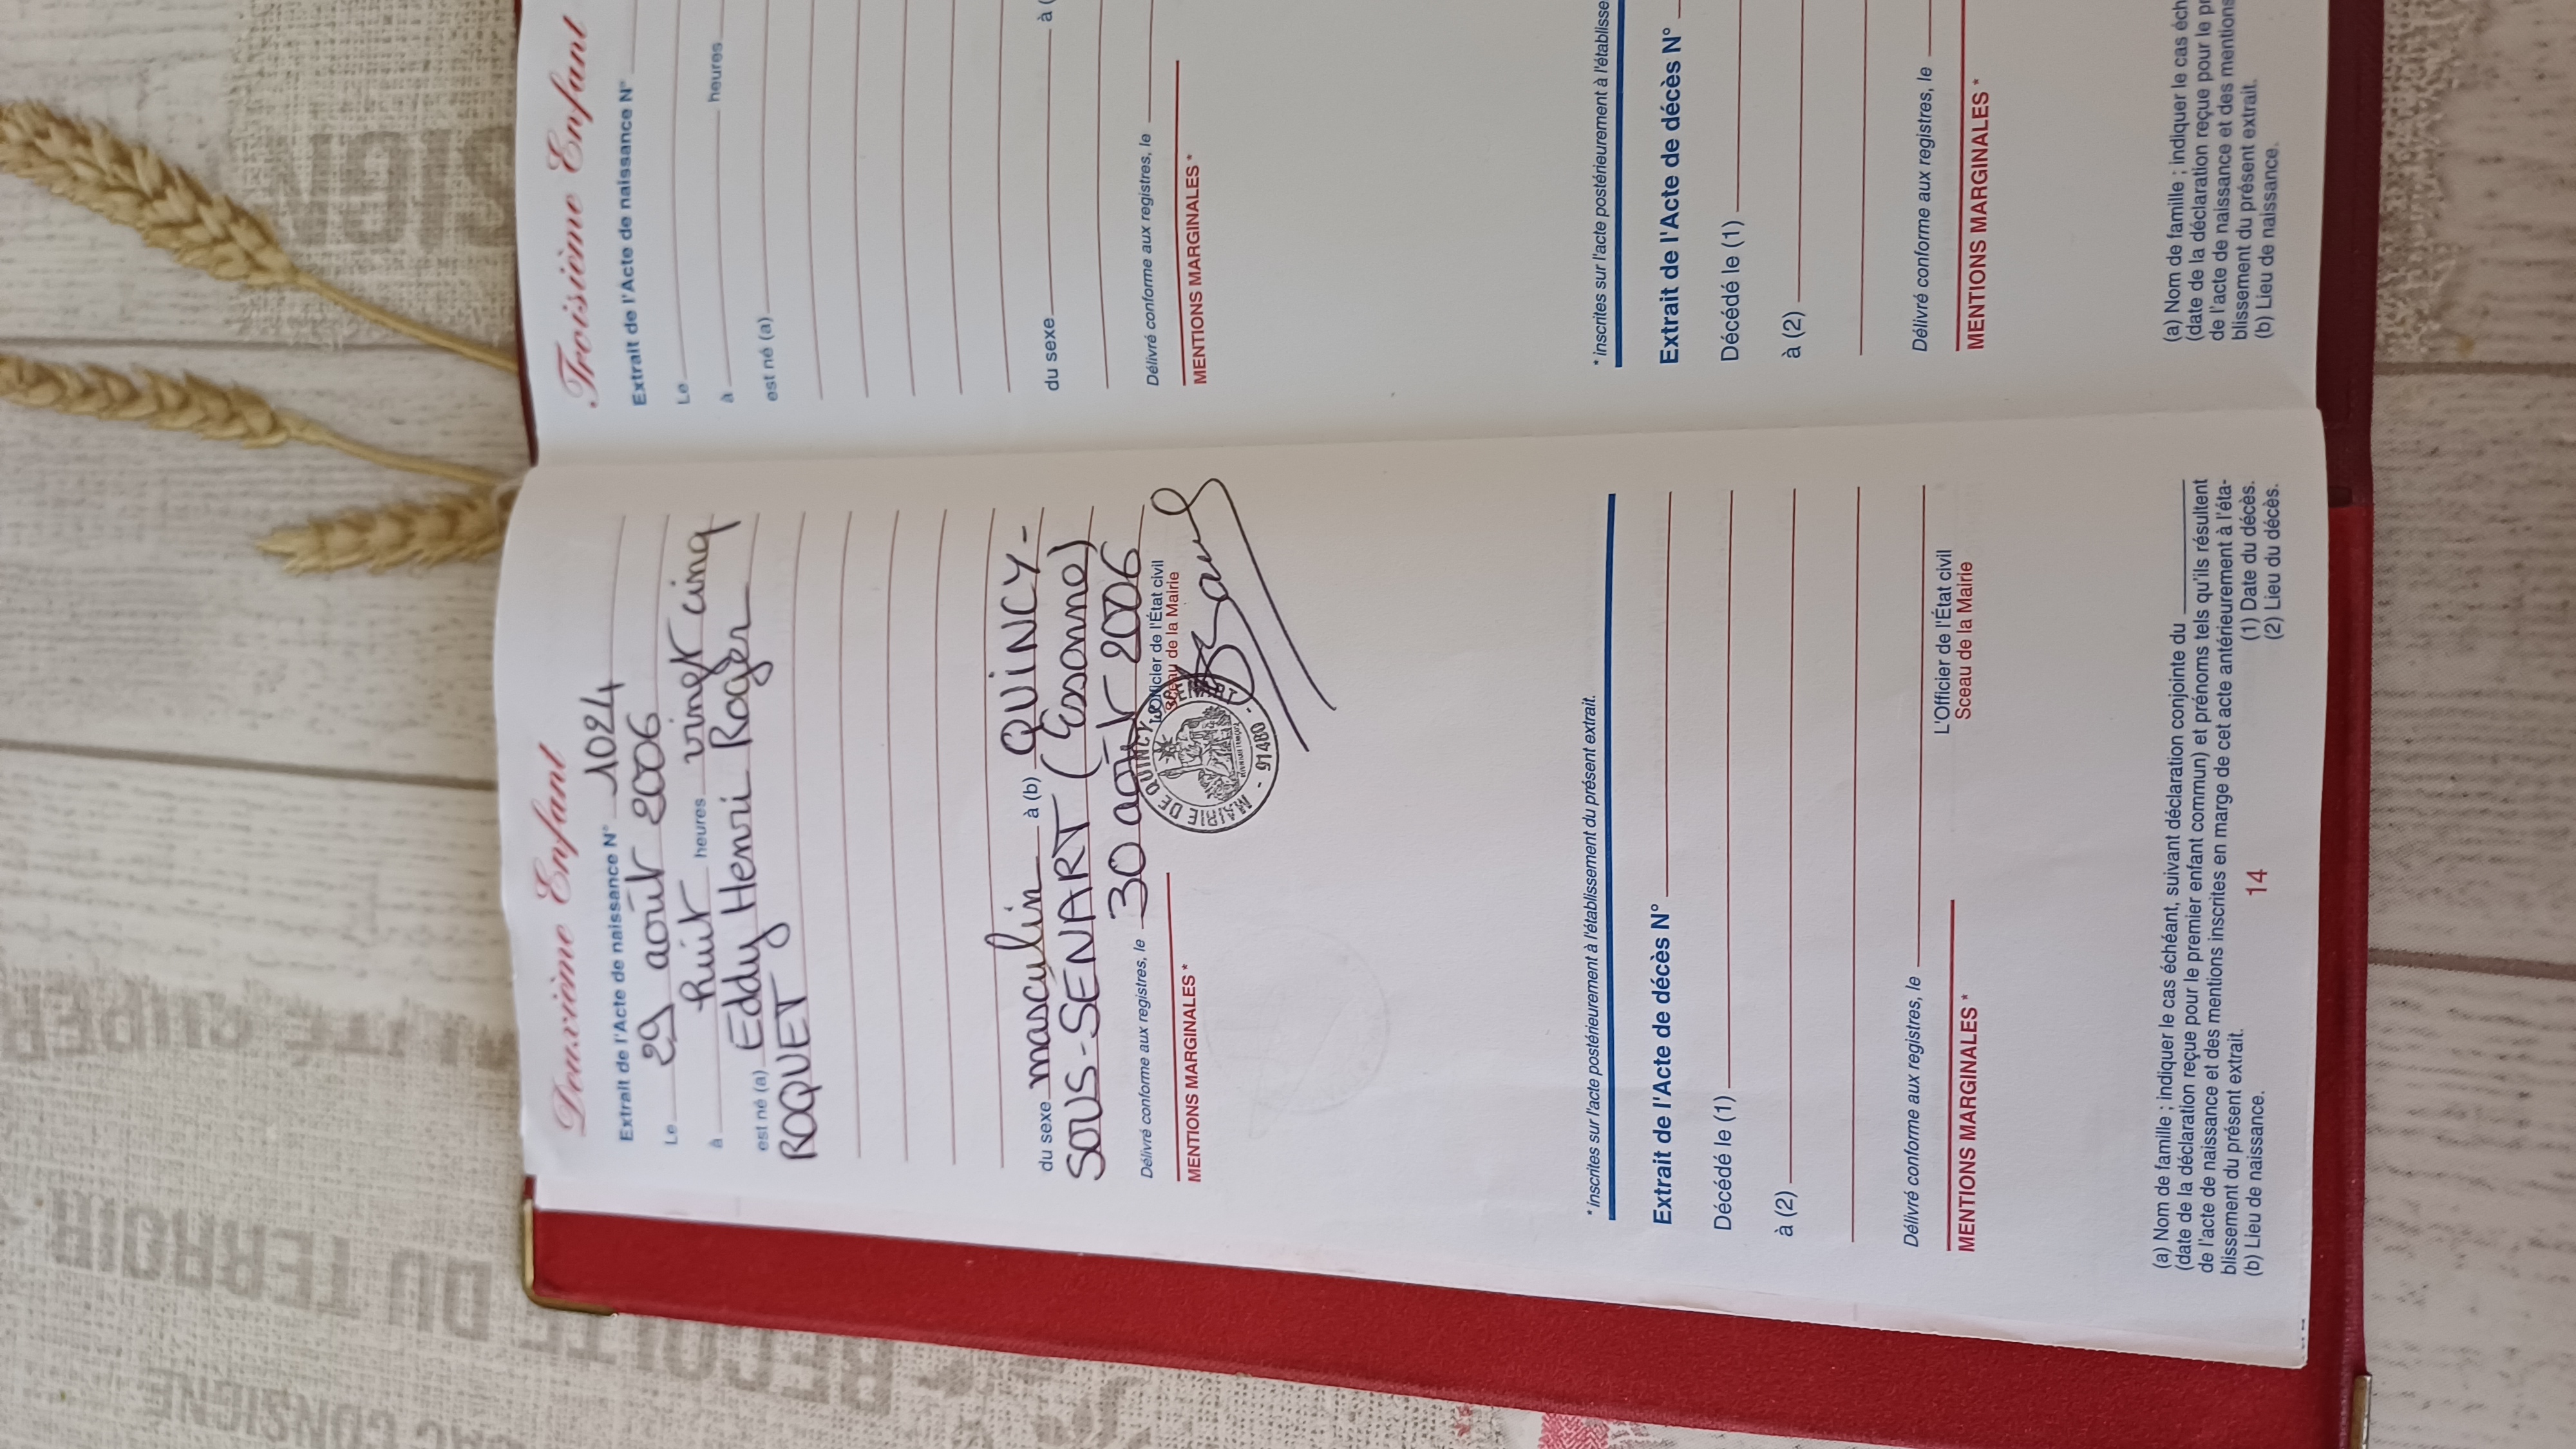 Deuxième Enfant
Extrait de l'Acte de naissance N° 1024
Le 29 août 2006
à huit heures vingt cinq
est né (a) Eddy Henri Roger
ROQUET
du sexe masculin à (b) QUINCY-
SOUS-SENART (Essonne)
Délivré conforme aux registres, le 30 août 2006
L'Officier de l'État civil
Sceau de la Mairie
MENTIONS MARGINALES *
MAIRIE DE QUINCY SENART - 91480 -
* inscrites sur l'acte postérieurement à l'établissement du présent extrait.
Extrait de l'Acte de décès N°
Décédé le (1)
à (2)
Délivré conforme aux registres, le
L'Officier de l'État civil
Sceau de la Mairie
MENTIONS MARGINALES *
(a) Nom de famille ; indiquer le cas échéant, suivant déclaration conjointe du
(date de la déclaration reçue pour le premier enfant commun) et prénoms tels qu'ils résultent
de l'acte de naissance et des mentions inscrites en marge de cet acte antérieurement à l'éta-
blissement du présent extrait. (1) Date du décès.
(b) Lieu de naissance. (2) Lieu du décès.
14
Troisième Enfant
Extrait de l'Acte de naissance N°
Le
à heures
est né (a)
du sexe à (
Délivré conforme aux registres, le
MENTIONS MARGINALES *
* inscrites sur l'acte postérieurement à l'établisse
Extrait de l'Acte de décès N°
Décédé le (1)
à (2)
Délivré conforme aux registres, le
MENTIONS MARGINALES *
(a) Nom de famille ; indiquer le cas éch
(date de la déclaration reçue pour le pr
de l'acte de naissance et des mentions
blissement du présent extrait.
(b) Lieu de naissance.
DU TERROIR
RECOLTE
SAC CONSIGNE
SIGN